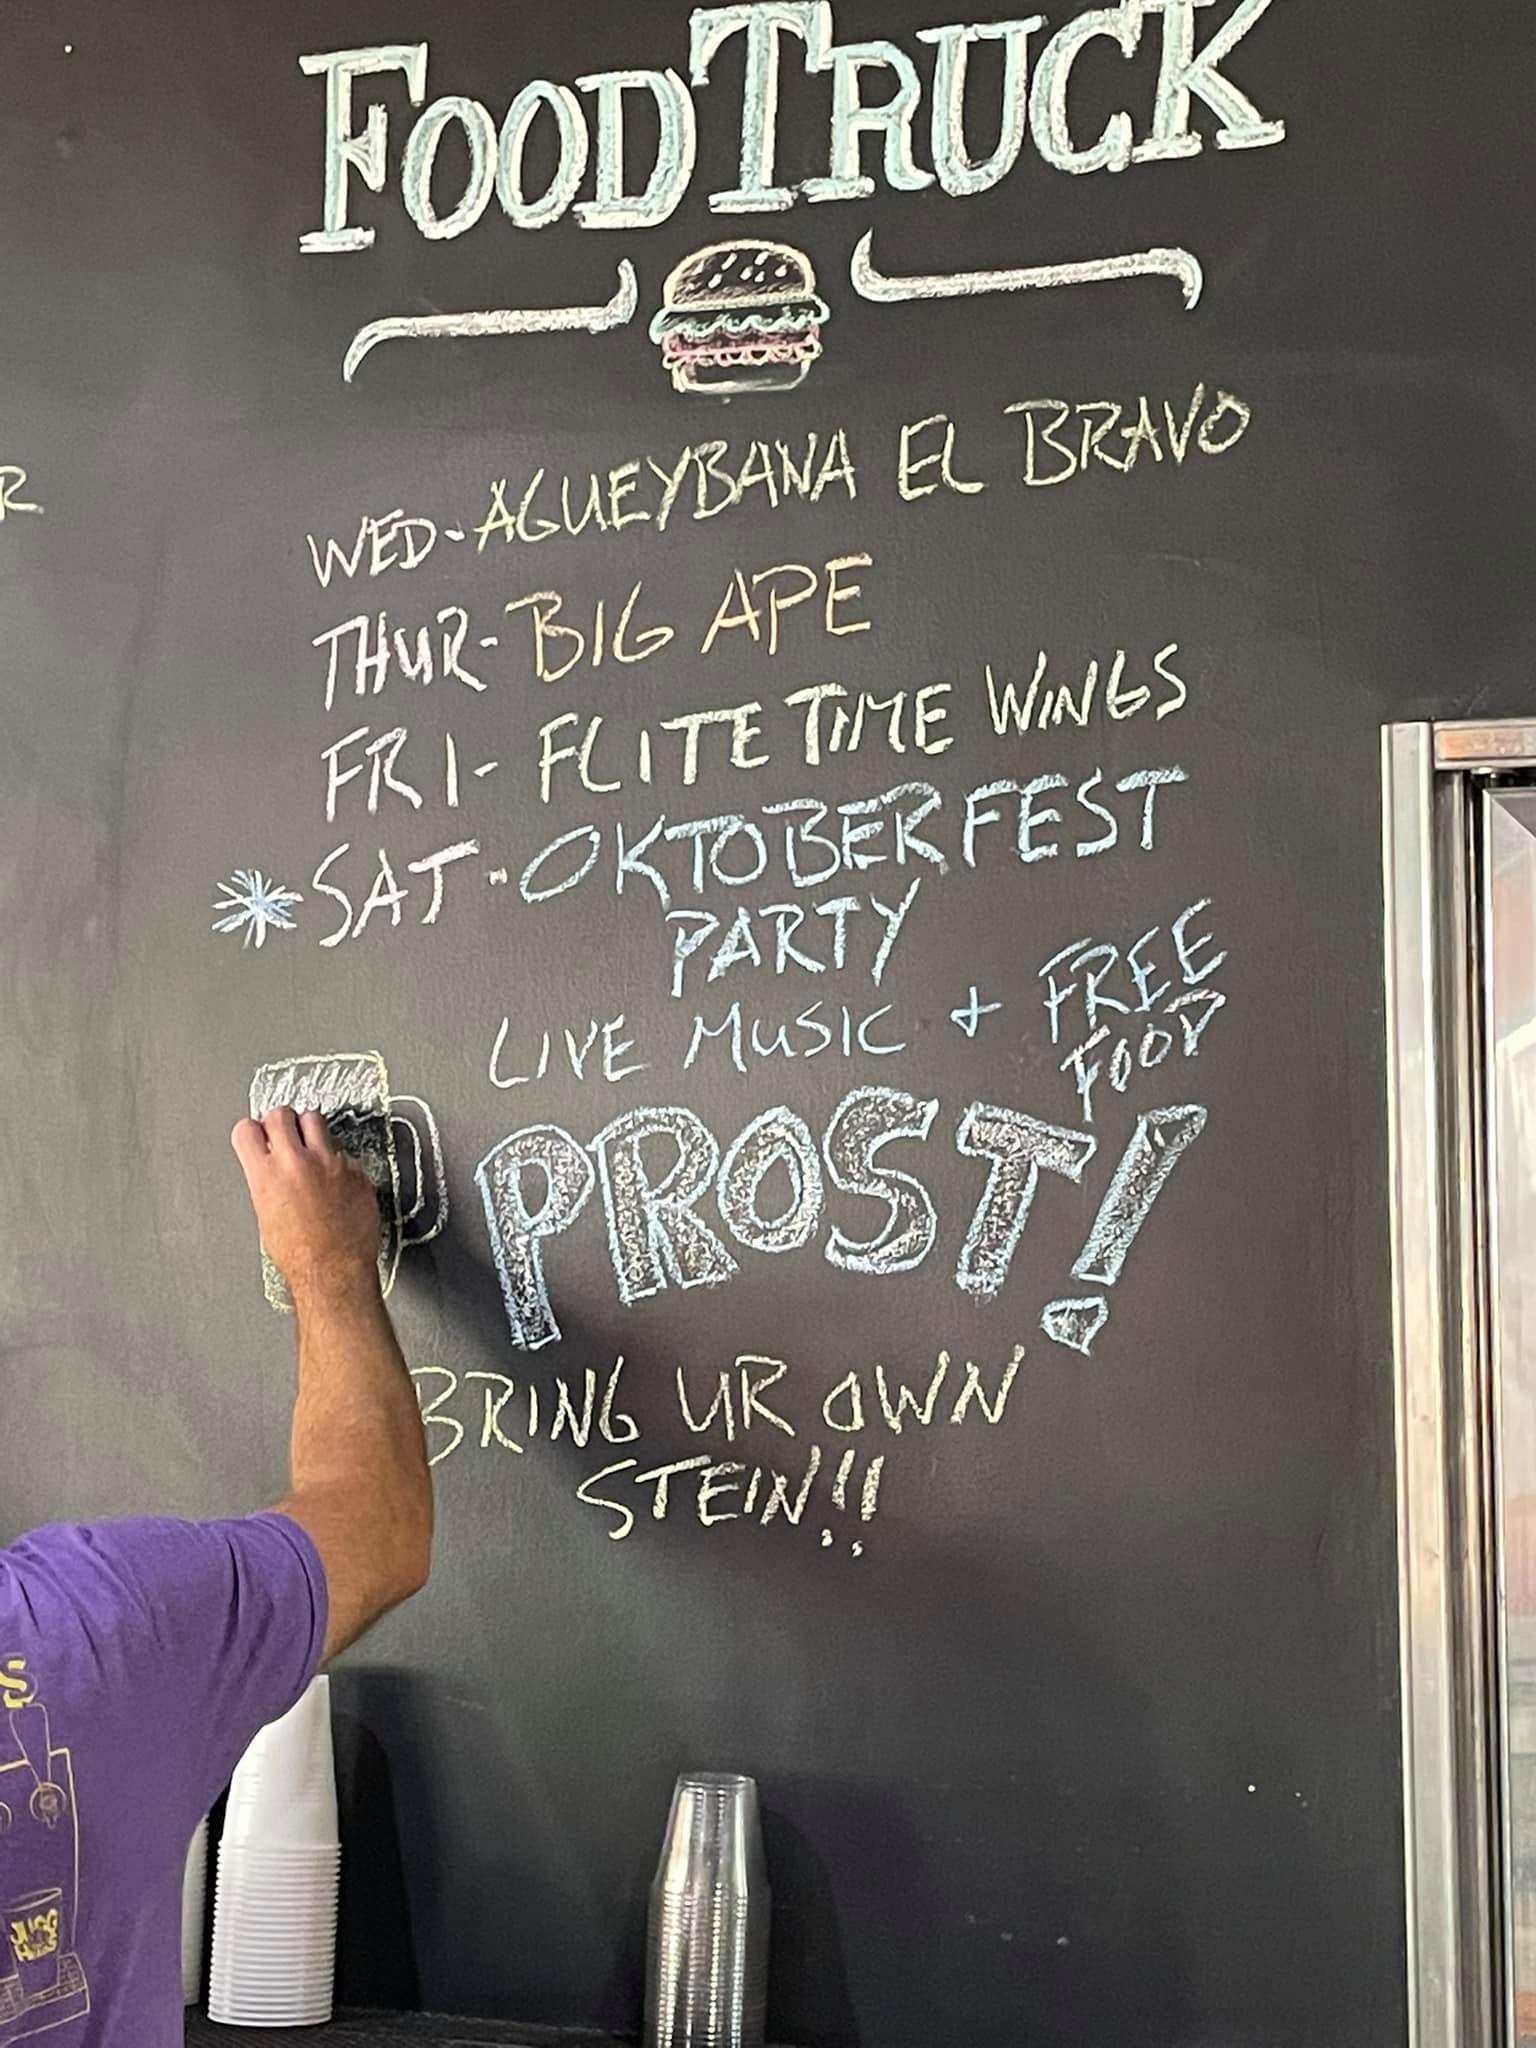 FOOD TRUCK
R
WED- AGUEYBANA EL BRAVO
THUR- BIG APE
FRI- FLITE TIME WINGS
* SAT- OKTOBERFEST
PARTY
LIVE MUSIC + FREE
FOOD
PROST!
BRING UR OWN
STEIN!!
S